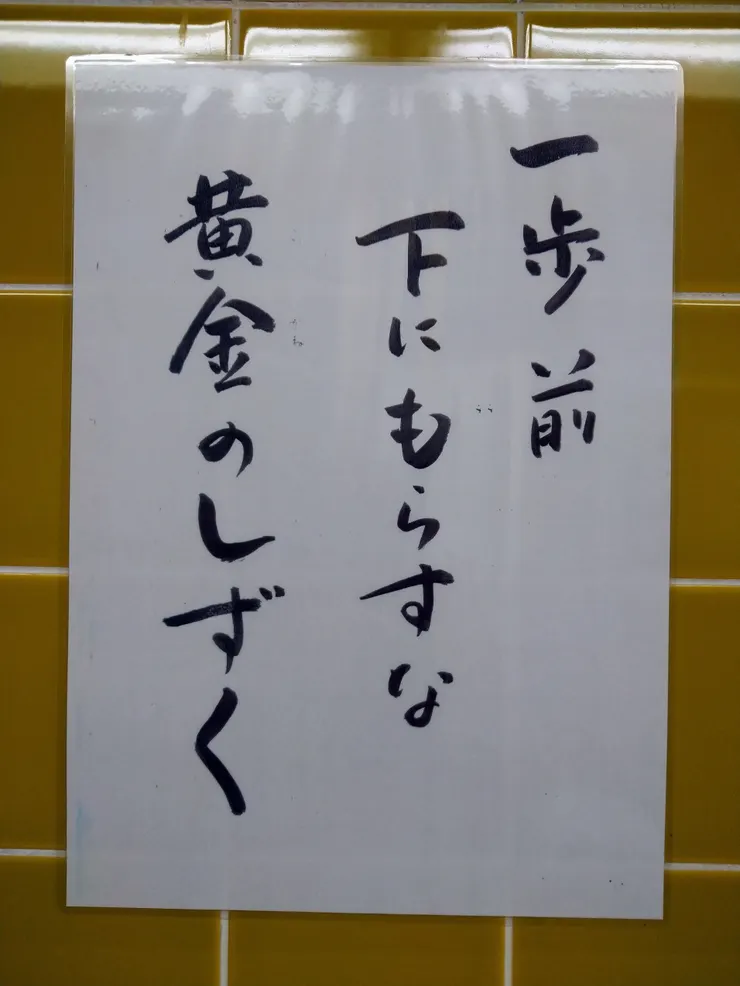 一歩前
下にもらすな
黄金のしずく